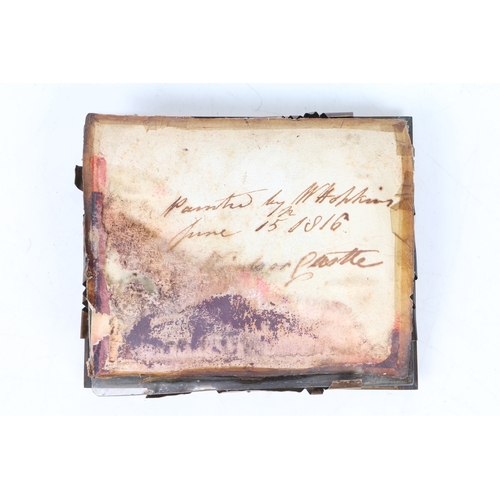 Painted by W Hopkins
June 15th 1816.
Windsor Castle